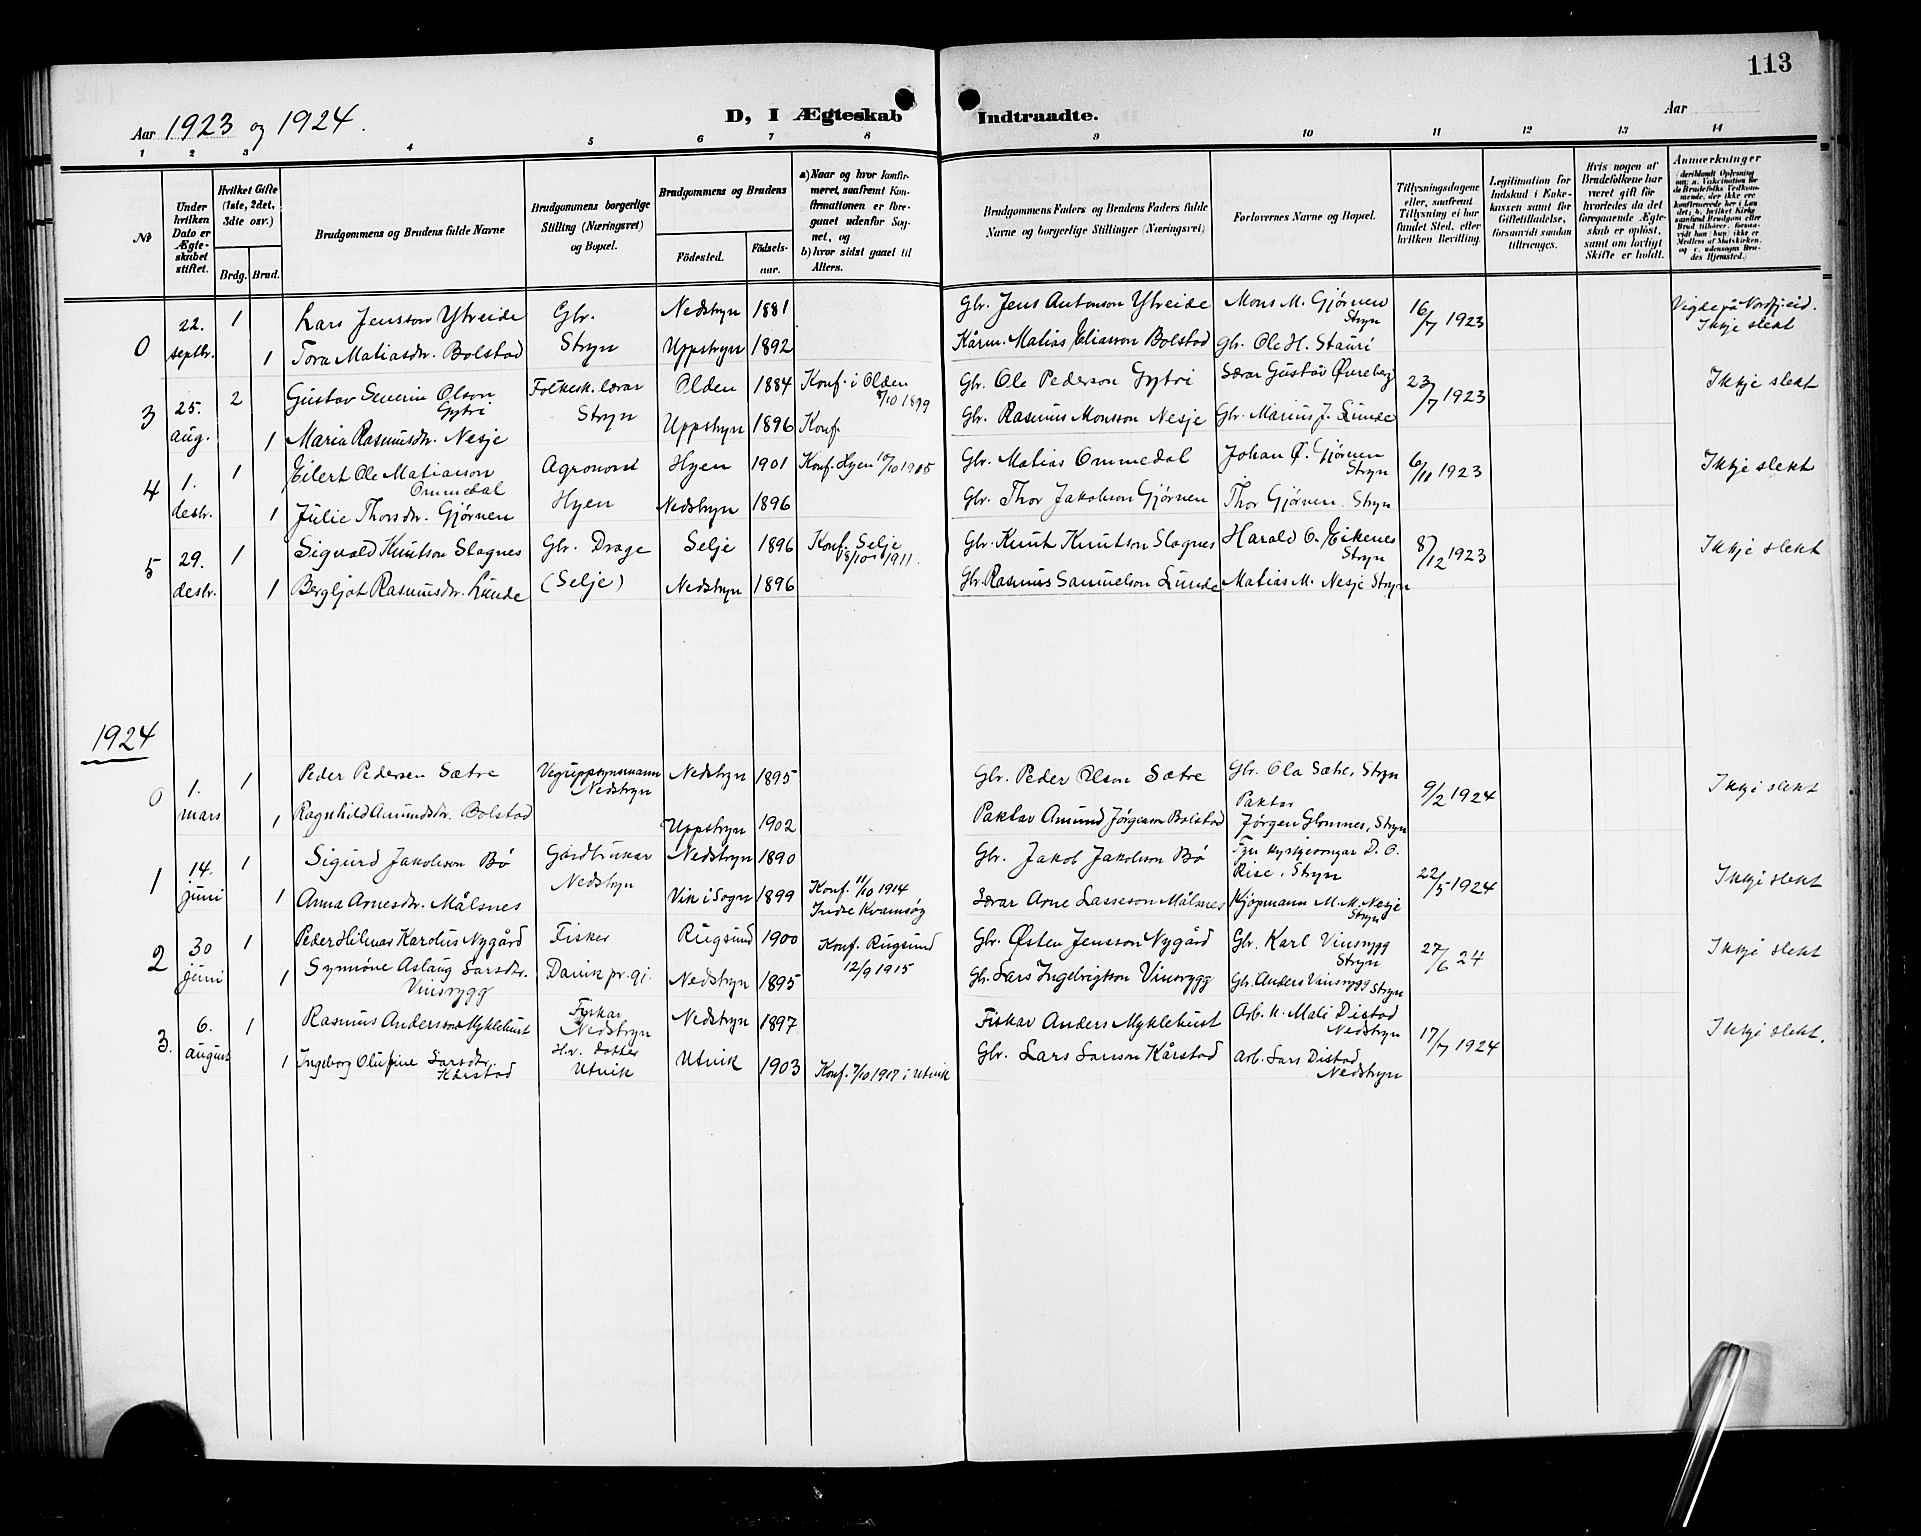 113
Aar 1923 og 1924.
D, I Ægteskab Indtraadte.
Aar
1 2 3 4 5 6 7 8 9 10 11 12 13 14
No
Under hvilken Dato er Ægteskabet stiftet.
Hvilket Gifte (1ste, 2det, 3die osv.)
Brdg. Brud.
Brudgommens og Brudens fulde Navne
Brudgommens borgerlige Stilling (Næringsvei) og Bopæl.
Brudgommens og Brudens
Födested. Födselsaar.
a) Naar og hvor konfirmeret, saafremt Konfirmationen er foregaaet udenfor Sognet, og
b) hvor sidst gaaet til Alters.
Brudgommens Faders og Brudens Faders fulde Navne og borgerlige Stillinger (Næringsvei)
Forlovernes Navne og Bopæl.
Tillysningsdagene eller, saafremt Tillysning ei har fundet Sted, efter hvilken Bevilling.
Legitimation for Indskud i Enkekassen samt for Giftetilladelse, forsaavidt saadan tiltrænges.
Hvis nogen af Brudefolkene har været gift før hvorledes da det foregaaende Ægteskab er oplöst, samt om lovligt Skifte er holdt.
Anmærkninger (deriblandt Oplysning om: a. Vakcination for de Brudefolks Vedkommende, der ikke ere konfirmerede her i Landet; b. hvilket Kirkesamfund Brudgom eller Brud tilhører, forsaavidt han (hun) ikke er Medlem af Statskirken, og c. udensogns Brudes Hjemsted.)
0 22. septbr. 1 Lars Jensson Ytreide Gbr. Stryn Nedstryn 1881 Gbr. Jens Antonson Ytreide Mons M. Gjørven Stryn 16/7 1923 Vigde på Nordfjeid. Ikkje slekt
1 Tora Matiasdr. Bolstad Uppstryn 1892 Kårm. Matias Eliasson Bolstad Gbr. Ole H. Stauri
3 25. aug. 2 Gustav Severin Olson Gytri Folkesk. lærar Stryn Olden 1884 Konf. i Olden 8/10 1899 Gbr. Ole Pederson Gytri Lærar Gustav Øvreberg 23/7 1923 Ikkje slekt
1 Maria Rasmusdr. Nesje Uppstryn 1896 Konf. Gbr. Rasmus Monsson Nesje Gbr. Marius J. Lunde
4 1. desbr. 1 Eilert Ole Matiasson Ommedal Agronom Hyen Hyen 1901 Konf. Hyen Gbr. Matias Ommedal Johan Ø. Gjørven Stryn 6/11 1923 Ikkje slekt
1 Julie Thorsdr. Gjørven Nedstryn 1896 Gbr. Thor Jakobson Gjørven Thor Gjørven. Stryn
5 29. desbr. 1 Sigvald Knutson Slagnes Gbr. Drage (Selje) Selje 1896 Konf. Selje 1911. Gbr. Knut Knutson Slagnes Harald O. Eikenes Stryn 8/12 1923 Ikkje slekt
1 Bergljot Rasmusdr. Lunde Nedstryn 1896 Gbr. Rasmus Samuelson Lunde Matias M. Nesje Stryn
1924
0 1. mars 1 Peder Pedersen Sætre Veguppsynsmann Nedstryn Nedstryn 1895 Gbr. Peder Olson Sætre Gbr. Ola Sætre, Stryn 9/2 1924 Ikkje slekt
1 Ragnhild Amundsdr. Bolstad Uppstryn 1902 Paktar Amund Jørgenson Bolstad Paktar Jørgen Glomnes, Stryn
1 14. juni 1 Sigurd Jakobson Bø Gardbrukar Nedstryn Nedstryn 1890 Gbr. Jakob Jakobson Bø Fyrr kyrkjesongar D. O. Rise, Stryn 22/5 1924 Ikkje slekt
1 Anna Arnesdr. Målsnes Vik i Sogn 1899 Konf. 11/10 1914 Indre Kvamsøy Lærar Arne Lasseson Målsnes Kjøpmann M. M. Nesje Stryn
2 30 juni 1 Peder Hilmar Karolus Nygård Fisker Rugsund 1900 Konf. Rugsund 12/9 1915 Gbr. Østen Jensson Nygård Gbr. Karl Vinsrygg Stryn 27/6 24 Ikkje slekt
1 Synnøve Aslaug Larsdtr. Vinsrygg Davik pr.gj. Nedstryn 1895 Gbr. Lars Ingebrigtson Vinsrygg Gbr. Anders Vinsrygg Stryn
3. 6. august 1 Rasmus Andersson Myklebust Fiskar Nedstryn Nedstryn 1897 Fiskar Anders Myklebust Arb. Mali Distad Nedstryn 17/7 1924 Ikkje slekt.
1 Ingeborg Olufine Larsdtr. Kårstad dotter Utvik Utvik 1903 Konf. 7/10 1917 i Utvik Gbr. Lars Larsson Kårstad Arb. Lars Distad Nedstryn